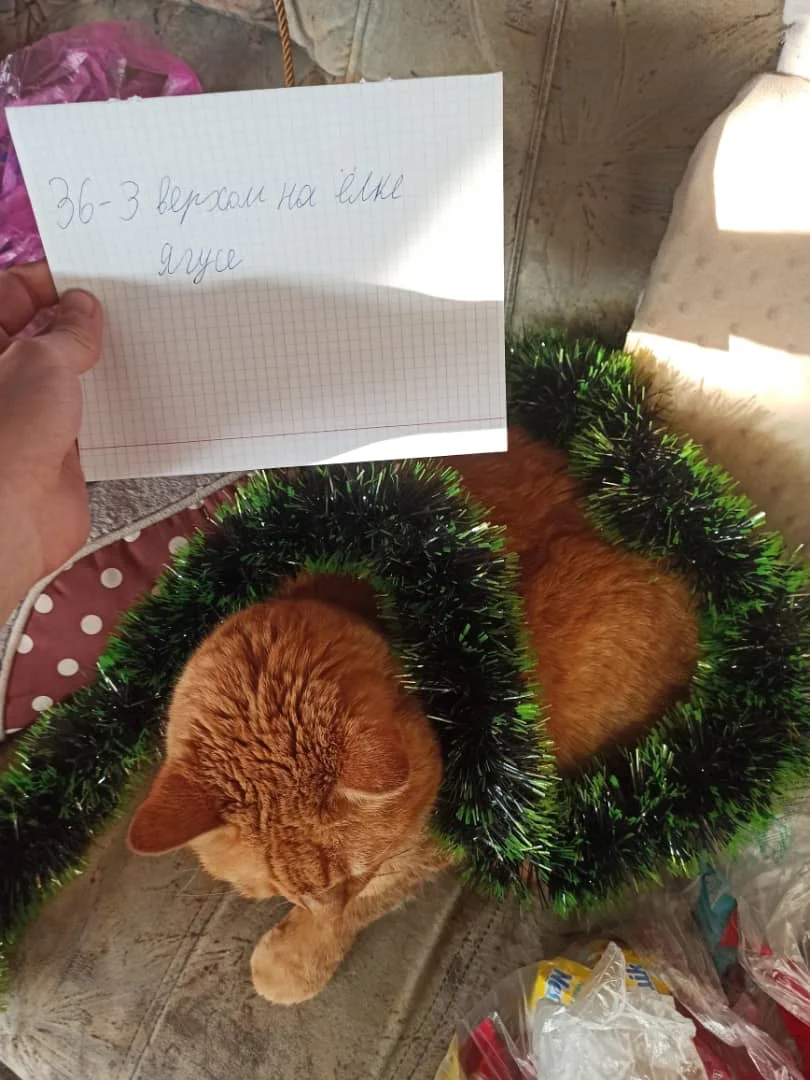 36-3 верхом на ёлке
ягусе